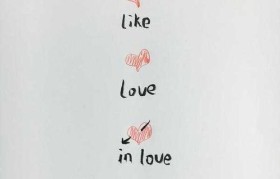 like
love
in love